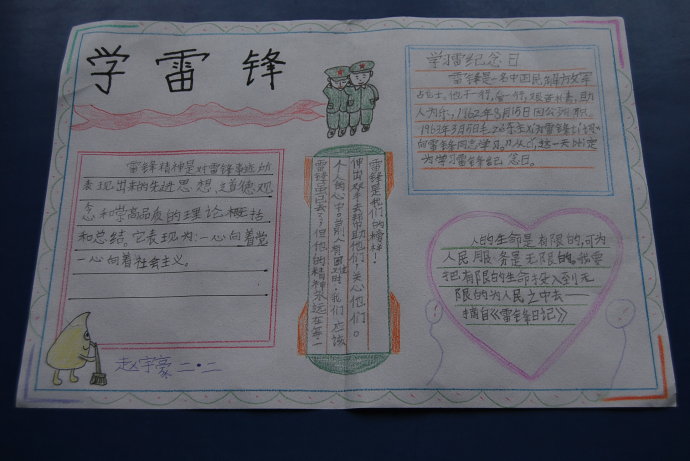 学雷锋
雷锋精神是对雷锋事迹所
表现出来的先进思想、道德观
念和崇高品质的理论概括
和总结。它表现为:一心向着党
一心向着社会主义。
赵宇豪 二·二
雷锋是我们的榜样!
伸出双手去帮助他们,关心他们。
个人的心中。当别人有困难时,我们应该
雷锋虽已去了,但他的精神永远在每一
学雷纪念日
雷锋是一名中国民解放军
占士,他干一行,爱一行,艰苦朴素,助
人为乐,1962年8月15日因公殉职。
1963年3月5日毛
向雷锋同志学习。从
为学习雷锋纪念日。
人的生命是有限的,可为
人民服务是无限的,我要
把有限的生命投入到无
限的为人民之中去——
摘自《雷锋日记》